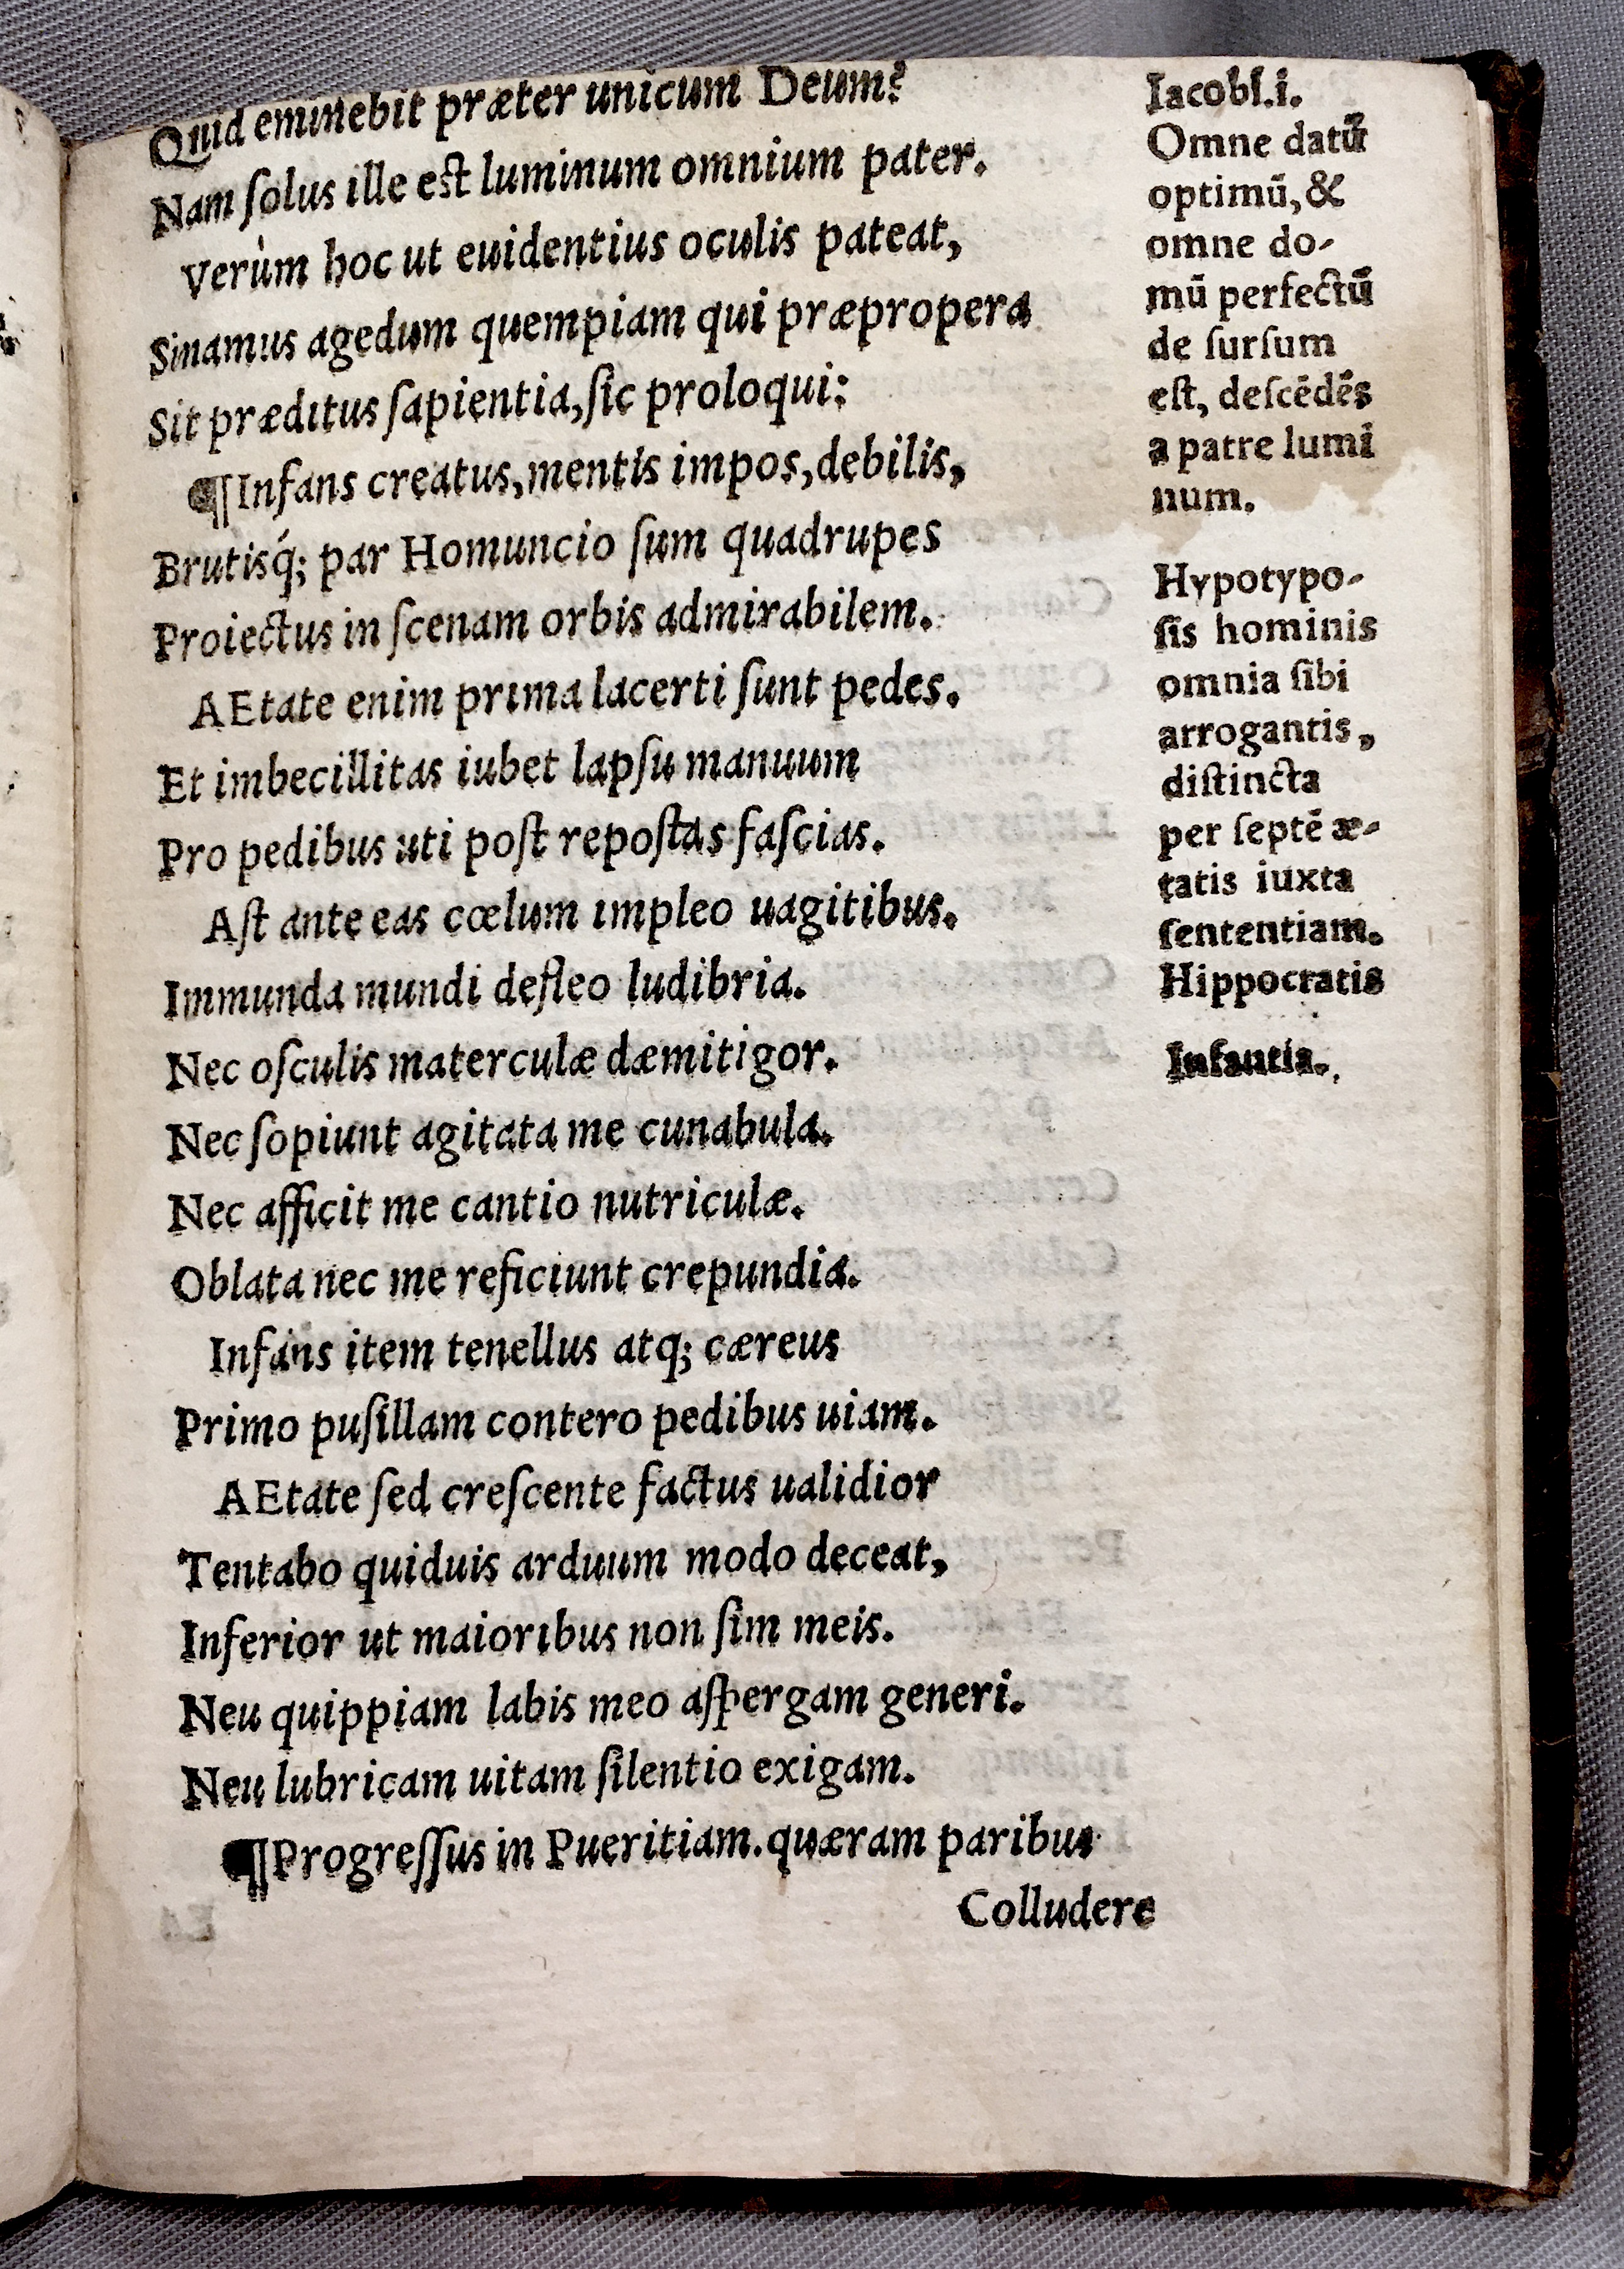 Quid eminebit præter unicum Deum?
Nam ſolus ille eſt luminum omnium pater.
Verùm hoc ut euidentius oculis pateat,
Sinamus agedum quempiam qui præpropera
Sit præditus ſapientia, ſic proloqui:
¶Infans creatus, mentis impos, debilis,
Brutisq́; par Homuncio ſum quadrupes
Proiectus in ſcenam orbis admirabilem.
AEtate enim prima lacerti ſunt pedes.
Et imbecillitas iubet lapſu manuum
Pro pedibus uti poſt repoſtas faſcias.
Aſt ante eas cœlum impleo uagitibus.
Immunda mundi defleo ludibria.
Nec oſculis materculæ dæmitigor.
Nec ſopiunt agitata me cunabula.
Nec afficit me cantio nutriculæ.
Oblata nec me reficiunt crepundia.
Infans item tenellus atq; cæreus
Primo puſillam contero pedibus uiam.
AEtate ſed creſcente factus ualidior
Tentabo quiduis arduum modo deceat,
Inferior ut maioribus non ſim meis.
Neu quippiam labis meo aſpergam generi.
Neu lubricam uitam ſilentio exigam.
¶Progreſſus in Pueritiam. quæram paribus
Colludere
Iacobi.i.
Omne datū
optimū, &
omne do-
mū perfectū
de ſurſum
eſt, deſcēdēs
a patre lumi
num.
Hypotypo-
ſis hominis
omnia ſibi
arrogantis,
diſtincta
per ſeptē æ-
tatis iuxta
ſententiam.
Hippocratis
Infantia.